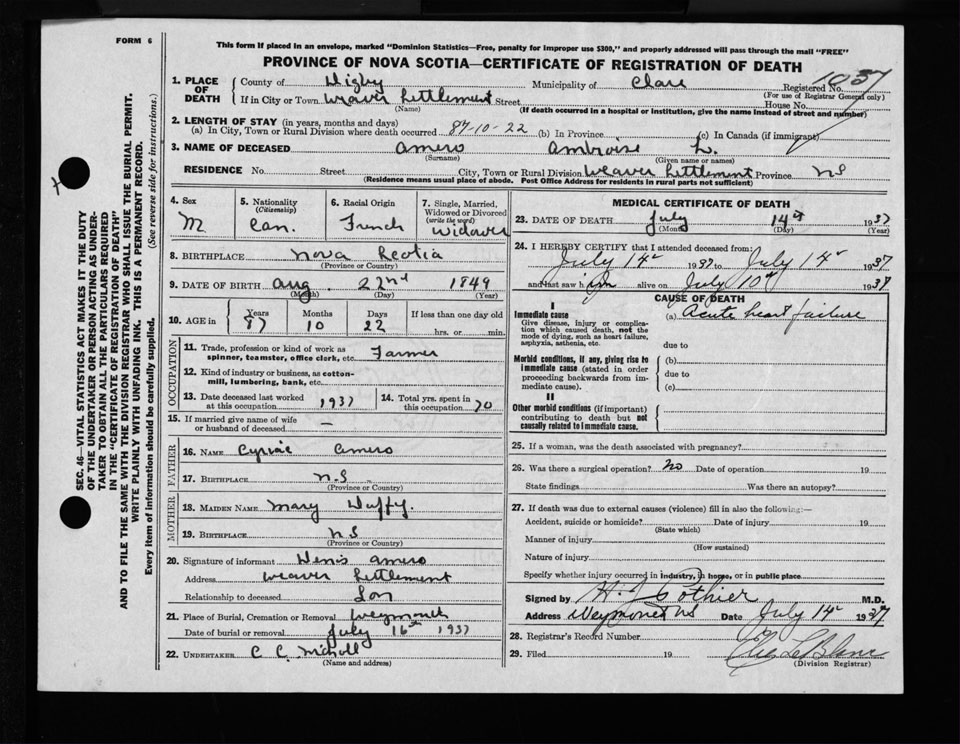 FORM 6
This form if placed in an envelope, marked "Dominion Statistics—Free, penalty for improper use $300," and properly addressed will pass through the mail "FREE"
PROVINCE OF NOVA SCOTIA—CERTIFICATE OF REGISTRATION OF DEATH
1. PLACE OF DEATH
County of Digby Municipality of Clare Registered No. 1037
(For use of Registrar General only)
If in City or Town Weaver Settlement Street House No.
(Name) (If death occurred in a hospital or institution, give the name instead of street and number)
2. LENGTH OF STAY (in years, months and days)
(a) In City, Town or Rural Division where death occurred 87-10-22 (b) In Province (c) In Canada (if immigrant)
3. NAME OF DECEASED Amero Ambroise L.
(Surname) (Given name or names)
RESIDENCE No. Street City, Town or Rural Division Weaver Settlement Province NS
(Residence means usual place of abode. Post Office Address for residents in rural parts not sufficient)
4. Sex
M
5. Nationality
(Citizenship)
Can.
6. Racial Origin
French
7. Single, Married, Widowed or Divorced
(write the word)
Widower
8. BIRTHPLACE Nova Scotia
(Province or Country)
9. DATE OF BIRTH Aug. 22nd 1849
(Month) (Day) (Year)
10. AGE in
Years Months Days If less than one day old
87 10 22 hrs. or min.
OCCUPATION
11. Trade, profession or kind of work as spinner, teamster, office clerk, etc. Farmer
12. Kind of industry or business, as cotton-mill, lumbering, bank, etc.
13. Date deceased last worked at this occupation 1937
14. Total yrs. spent in this occupation 70
15. If married give name of wife or husband of deceased —
FATHER
16. NAME Cyriac Amero
17. BIRTHPLACE N.S
(Province or Country)
MOTHER
18. MAIDEN NAME Mary Duffy.
19. BIRTHPLACE NS
(Province or Country)
20. Signature of informant Denis Amero
Address Weaver Settlement
Relationship to deceased Son
21. Place of Burial, Cremation or Removal Weymouth
Date of burial or removal July 16th 1937
22. UNDERTAKER C C
(Name and address)
MEDICAL CERTIFICATE OF DEATH
23. DATE OF DEATH July 14th 1937
(Month) (Day) (Year)
24. I HEREBY CERTIFY that I attended deceased from:
July 14 1937 to July 14 1937
and last saw him alive on July 10th 1937
CAUSE OF DEATH
I
Immediate cause
Give disease, injury or complication which caused death, not the mode of dying, such as heart failure, asphyxia, asthenia, etc.
(a) Acute heart failure
due to
Morbid conditions, if any, giving rise to immediate cause (stated in order proceeding backwards from immediate cause).
(b)
due to
(c)
II
Other morbid conditions (if important) contributing to death but not causally related to immediate cause.
25. If a woman, was the death associated with pregnancy?
26. Was there a surgical operation? No Date of operation 19
State findings Was there an autopsy?
27. If death was due to external causes (violence) fill in also the following:—
Accident, suicide or homicide? Date of injury 19
(State which)
Manner of injury
(How sustained)
Nature of injury
Specify whether injury occurred in industry, in home, or in public place
Signed by H. J. Pothier M.D.
Address Weymouth NS Date July 14 1937
28. Registrar's Record Number
29. Filed 19 LeBlanc
(Division Registrar)
SEC. 46—VITAL STATISTICS ACT MAKES IT THE DUTY
OF THE UNDERTAKER OR PERSON ACTING AS UNDER-
TAKER TO OBTAIN ALL THE PARTICULARS REQUIRED
IN THE "CERTIFICATE OF REGISTRATION OF DEATH"
AND TO FILE THE SAME WITH THE DIVISION REGISTRAR WHO SHALL ISSUE THE BURIAL PERMIT.
WRITE PLAINLY WITH UNFADING INK. THIS IS A PERMANENT RECORD.
Every item of information should be carefully supplied. (See reverse side for instructions.)